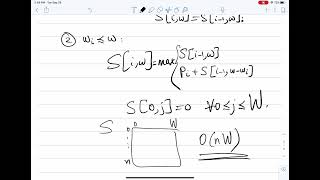 S[i,w]=S[i-1,w];
② wᵢ ≤ w:
S[i,w]=max{ S[i-1,w]
Pᵢ+S[i-1,w-wᵢ]
S[0,j]=0 ∀0≤j≤W.
S
0 W
0
n
O(nW)